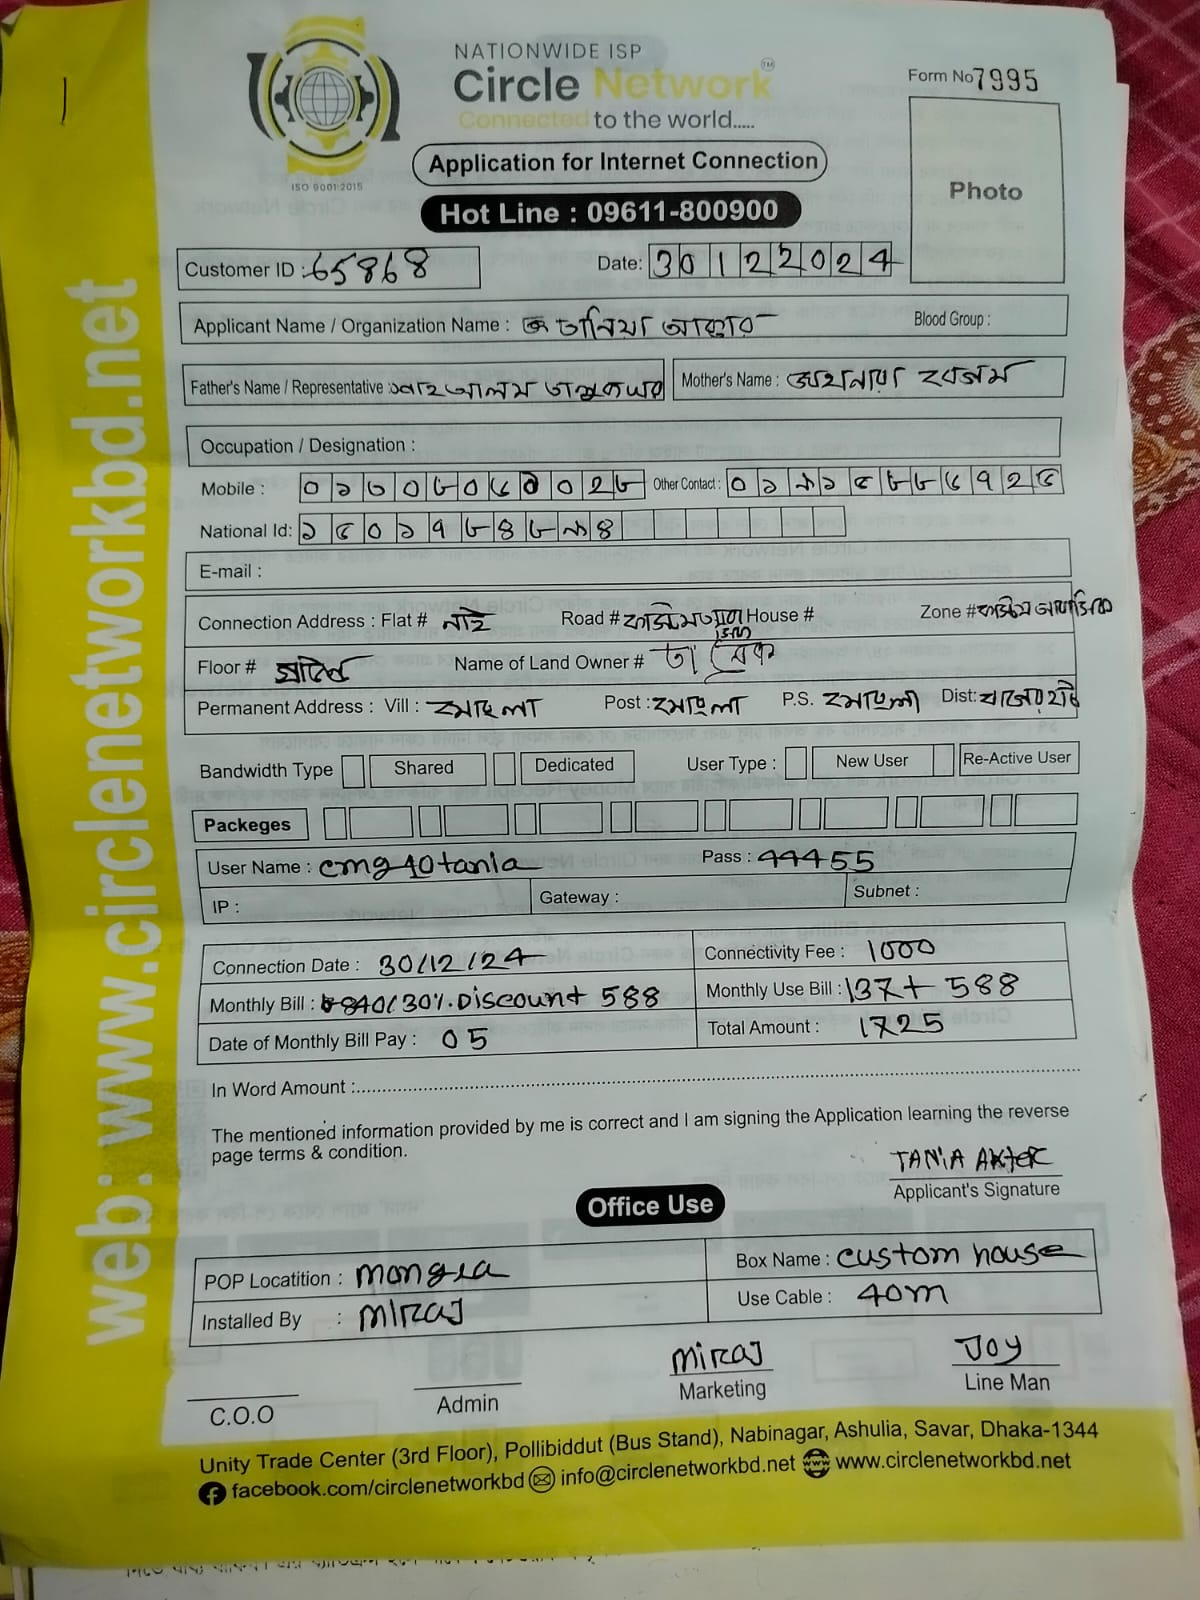 NATIONWIDE ISP
Circle Network TM
Connected to the world.....
ISO 9001:2015
Form No 7995
Photo
Application for Internet Connection
Hot Line : 09611-800900
Customer ID : 65868
Date: 30122024
Applicant Name / Organization Name : তানিয়া আক্তার
Blood Group :
Father's Name / Representative : শাহ আলম তালুকদার
Mother's Name : জাহানারা বেগম
Occupation / Designation :
Mobile :
Other Contact :
National Id:
E-mail :
Connection Address : Flat # নাই Road # House # Zone #
Floor # Name of Land Owner #
Permanent Address : Vill : মোংলা Post : মোংলা P.S. মোংলা Dist: বাগেরহাট
Bandwidth Type Shared Dedicated User Type : New User Re-Active User
Packeges
User Name : cmg40tania Pass : 44455
IP : Gateway : Subnet :
Connection Date : 30/12/24 Connectivity Fee : 1000
Monthly Bill : 840/30% Discount 588 Monthly Use Bill : 137+ 588
Date of Monthly Bill Pay : 05 Total Amount : 1725
In Word Amount :
The mentioned information provided by me is correct and I am signing the Application learning the reverse
page terms & condition.
TANIA AKTER
Applicant's Signature
Office Use
POP Locatition : mongla Box Name : custom house
Installed By : MIRAJ Use Cable : 40m
MIRAJ JOY
C.O.O Admin Marketing Line Man
Unity Trade Center (3rd Floor), Pollibiddut (Bus Stand), Nabinagar, Ashulia, Savar, Dhaka-1344
facebook.com/circlenetworkbd info@circlenetworkbd.net www.circlenetworkbd.net
web: www.circlenetworkbd.net